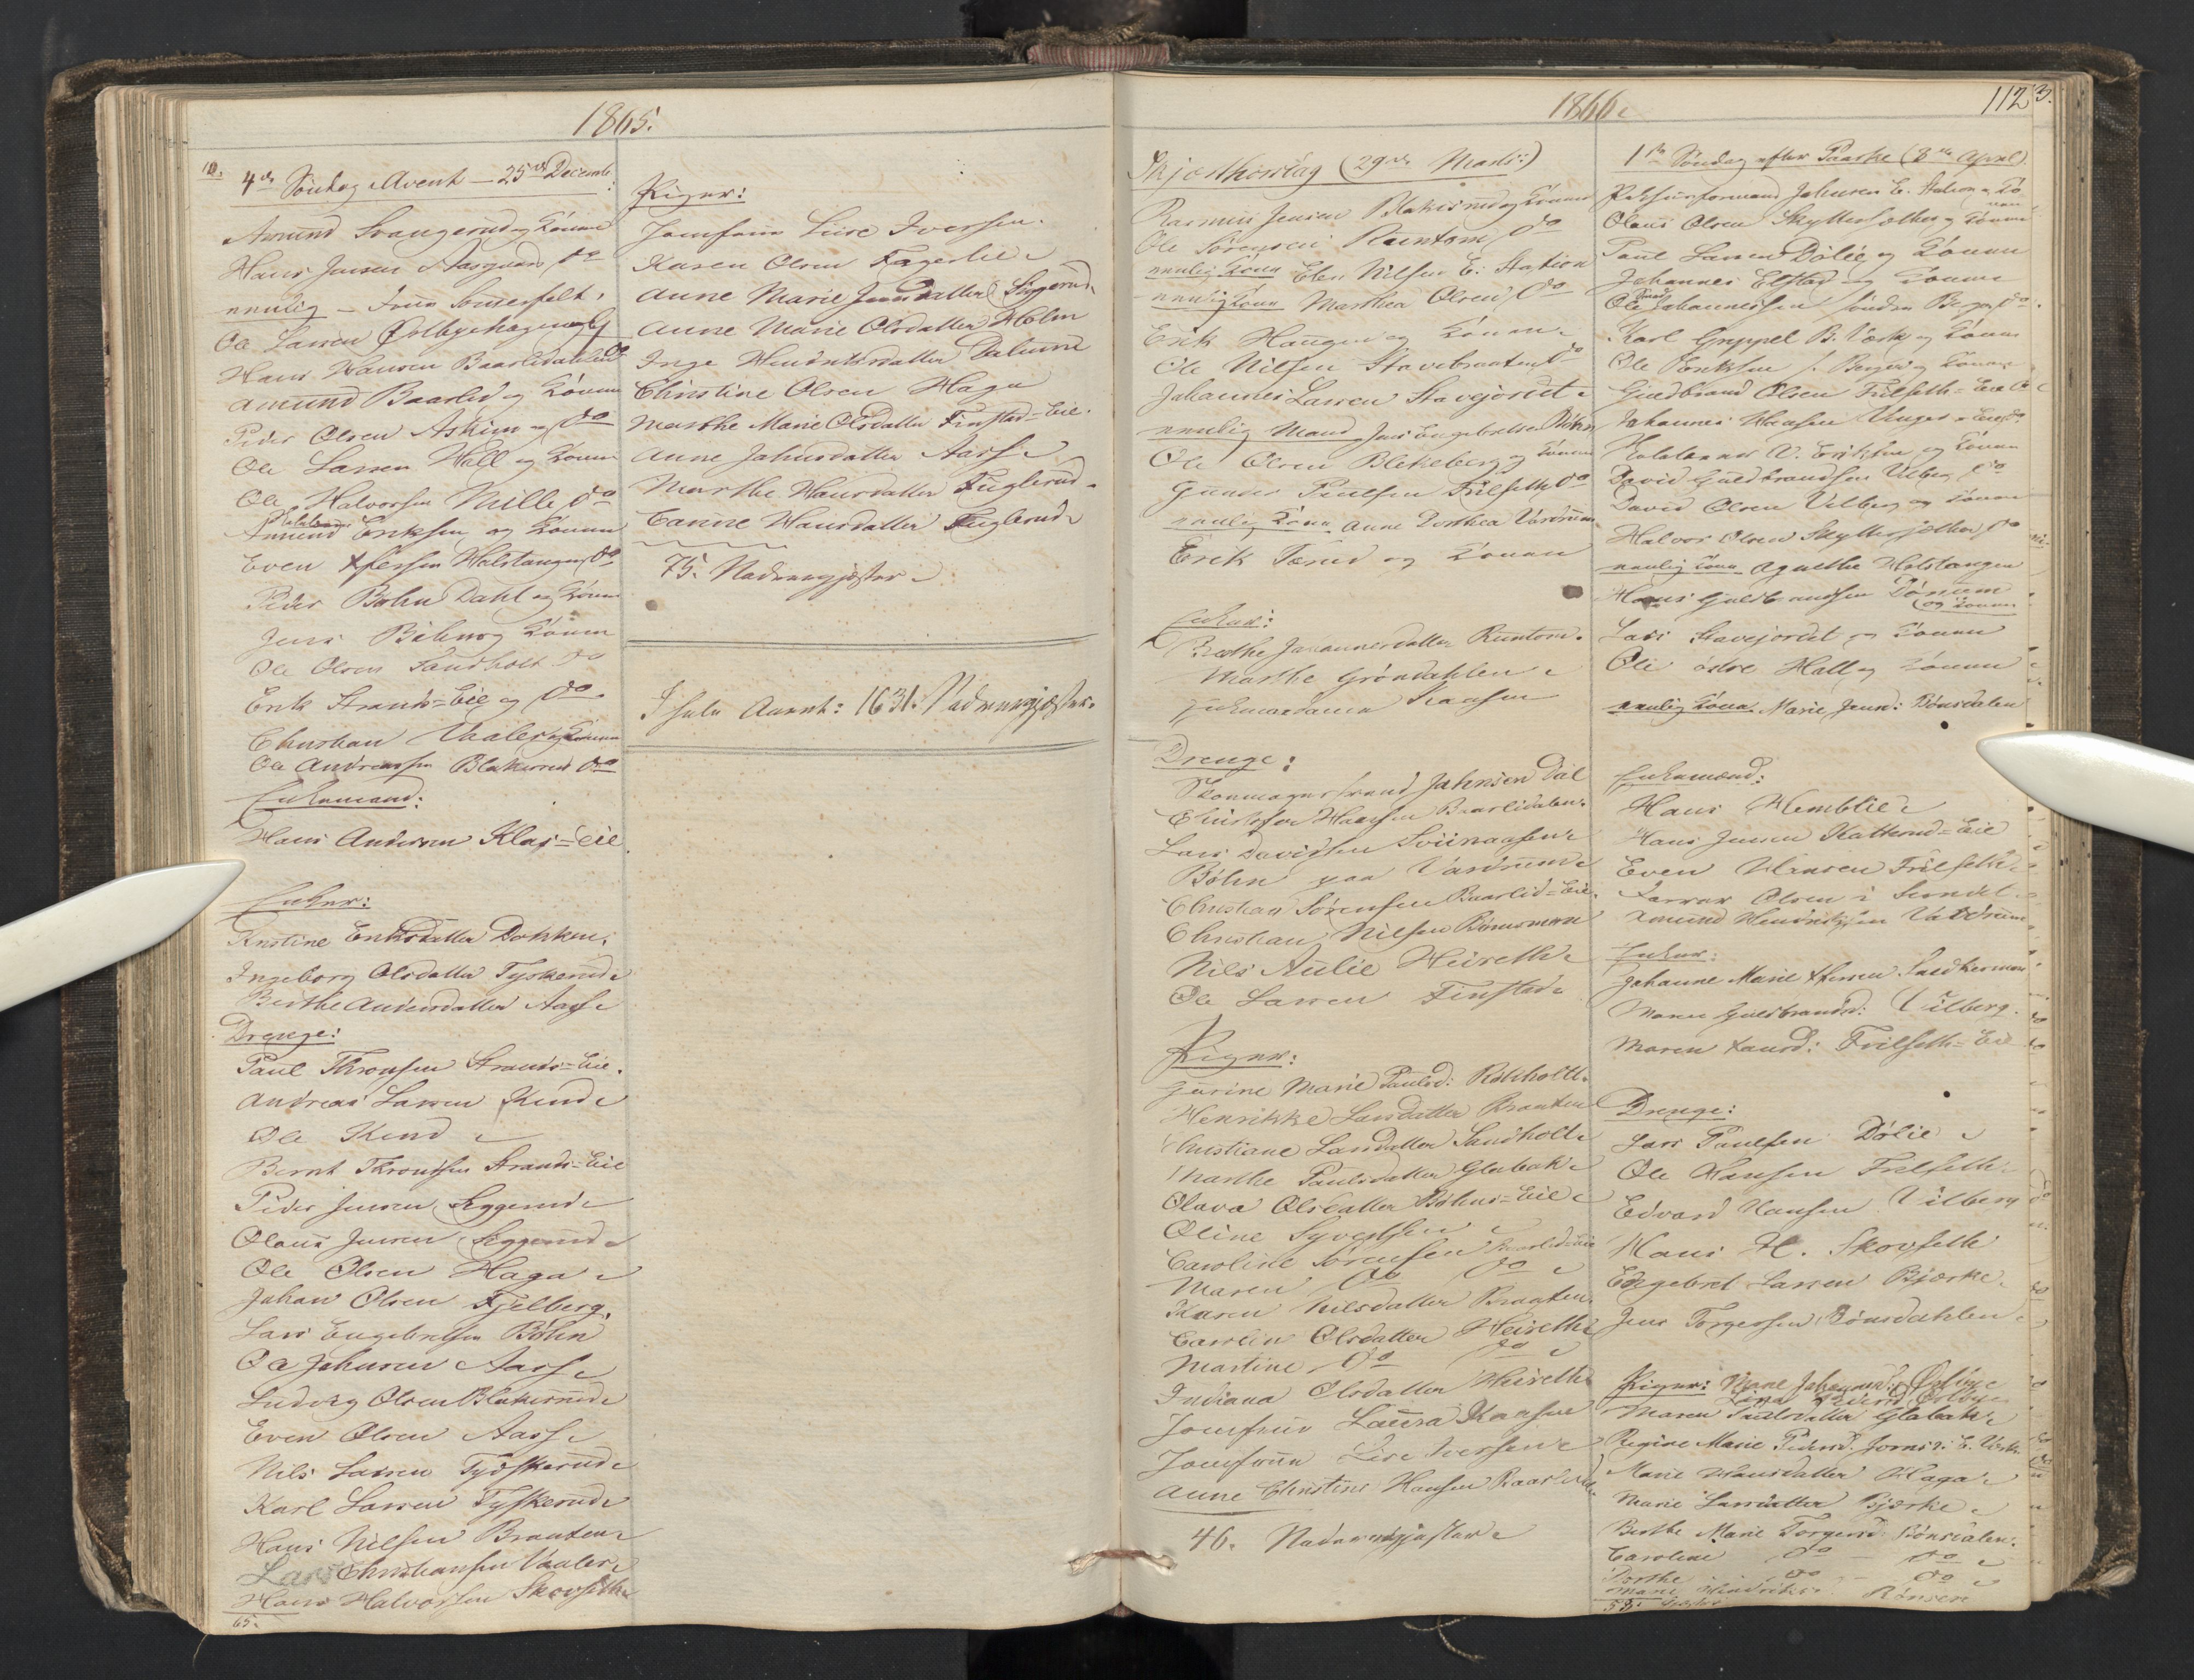 1865.
4de Søndag i Advent – 25de Decemb:
Amund Svangerud og Konen
Hans Jensen Aasgaard do
nemlig – Jens Sommerfelt.
Ole Larsen Ørbyehagen og
Hans Hansen Baarlidahlen do
Amund Baarlid og Konen
Peder Olsen Askim og do
Ole Larsen Hall og Konen
Ole Halvorsen Nille do
Amund Eriksen og Konen
Even Holstangen do
Peder Bøhn Dahl og Konen
Jens Bøhn og Konen
Ole Olsen Sandholt do
Erik Strands=Eie og do.
Christian Vaaler og Konen
Ole Andreassen Blakerud do
Enkemand:
Hans Andersen Klas=Eie
Enker:
Kristine Eriksdatter Dokken.
Ingeborg Olsdatter Tyskerud
Berthe Andersdatter Aas
Drenge:
Paul Thronsen Strands=Eie.
Andreas Larsen Kind
Ole Kind
Bernt Thronsen Strands=Eie
Peder Jensen Siggerud
Olaus Jensen Siggerud
Ole Olsen Haga
Johan Olsen Fjelberg.
Lars Engebretsen Bøhn
Ole Johnsen Aas
Ludvig Olsen Blakerud
Even Olsen Aas
Nils Larsen Tydskerud
Karl Larsen Tyskerud
Hans Nilsen Braaten
Lars Christiansen Vaaler
Hans Halvorsen Skovseth
65.
Piger:
Jomfrue Lise Iversen.
Karen Olsen Fagerlie
Anne Marie Jensdatter Siggerud
Anne Marie Olsdatter Holm
Inge Hendriksdatter Dalund
Christine Olsen Haga
Marthe Marie Olsdatter Finstad=Eie.
Anne Johnsdatter Aas
Marthe Hansdatter Fuglerud.
Hansdatter Fuglerud
75. Nadvergjester
I hele Aaret: 1631. Nadvergjester.
1866
112
3.
Skjærthorsdag (29de Marts:)
Rasmus Jensen Blakerud og Konen
Ole Sørensen Runtom do
nemlig Kona Elen Nilsen E. Station
nemlig Kona Marthea Olsen do
Erik Haugen og Konen
Ole Nilsen Stavebraaten do
Johannes Larsen Stavejordet
nemlig Mand Jens Engebretsen Bøhn
Ole Olsen Blekeberg og Konen
Gunder Paulsen Frilseth do
nemlig Kona Anne Dorthea Vardrum
Erik Tærud og Konen
Enker:
Berthe Johannesdatter Runtom.
Marthe Grøndahlen
Kaasen
Drenge:
Skomagersvend Johnsen Dal
Christopher Hansen Baarlidalen.
Lars Davidsen Sviinaasen
Bøhn paa Vardrum
Christian Sørensen Baarlid=Eie.
Christian Nilsen Bønsmoen
Nils Aulie Heireth
Ole Larsen Finstad
Piger:
Gurine Marie Paulsd: Rokholt.
Henrikke Larsdatter Braaten
Christiane Larsdatter Sandholt
Marthe Paulsdatter Glabak
Olava Olsdatter Bøhns=Eie
Oline Syvertsen
Caroline Sørensen Baarlid=Eie
Maren do do
Karen Nilsdatter Braaten
Caroline Olsdatter Heireth
Martine do do
Indiana Olsdatter Heireth
Jomfrue Laura Kaasen
Jomfrue Lise Iversen
Anne Christine Hansen Baarlidal.
46. Nadvergjester
1ste Søndag efter Paaske (8de April)
Johnsen E. Station og Ko
nen
Olaus Olsen Skyttersæther og Konen
Paul Larsen Dølie og Konen
Johannes Elstad og Konen
Ole Johannessen søndre Berger do.
Karl Gruppel B. Værk og Konen
Ole Eriksen S. Berger og Konen
Guldbrand Olsen Frilseth=Eie do
Johannes Hansen Unger=Eie do
Holsteiner A. Eriksen og Konen
David Guldbrandsen Vilberg do
David Olsen Vilberg og Konen
Halvor Olsen Skyttersæther do
nemlig Kona Agnethe Holstangen
Hans Guldbrandsen
og Konen
Lars Stavejordet og Konen
Ole østre Hall og Konen
nemlig Kona Marie Jensd: Bønsdalen
Enkemænd:
Hans Hemblie
Hans Jensen Katterud=Eie
Even Hansen Frilseth
Olsen i Sundet
Amund Hendriksen Vardrum
Enker:
Johanne Marie
Maren Guldbrandsd: Vilberg.
Maren Hansd: Frilseth=Eie
Drenge:
Lars Paulsen Dølie
Ole Hansen Frilseth
Edvard Hansen Vilberg
Hans H. Skovseth
Engebret Larsen Bjørke.
Jens Torgersen Bønsdahlen
Piger: Marie Johannesd: Ørbye
Pedersd. Ørbye
Maren Paulsdatter Glabak
Regine Marie Pedersd. E. Værk
Marie Hansdatter Haga
Marie Larsdatter Bjørke
Berthe Marie Torgersd. Bønsdalen.
Caroline do – do
Dorthe do – do
Marie Hendriks: Rønsen
58.